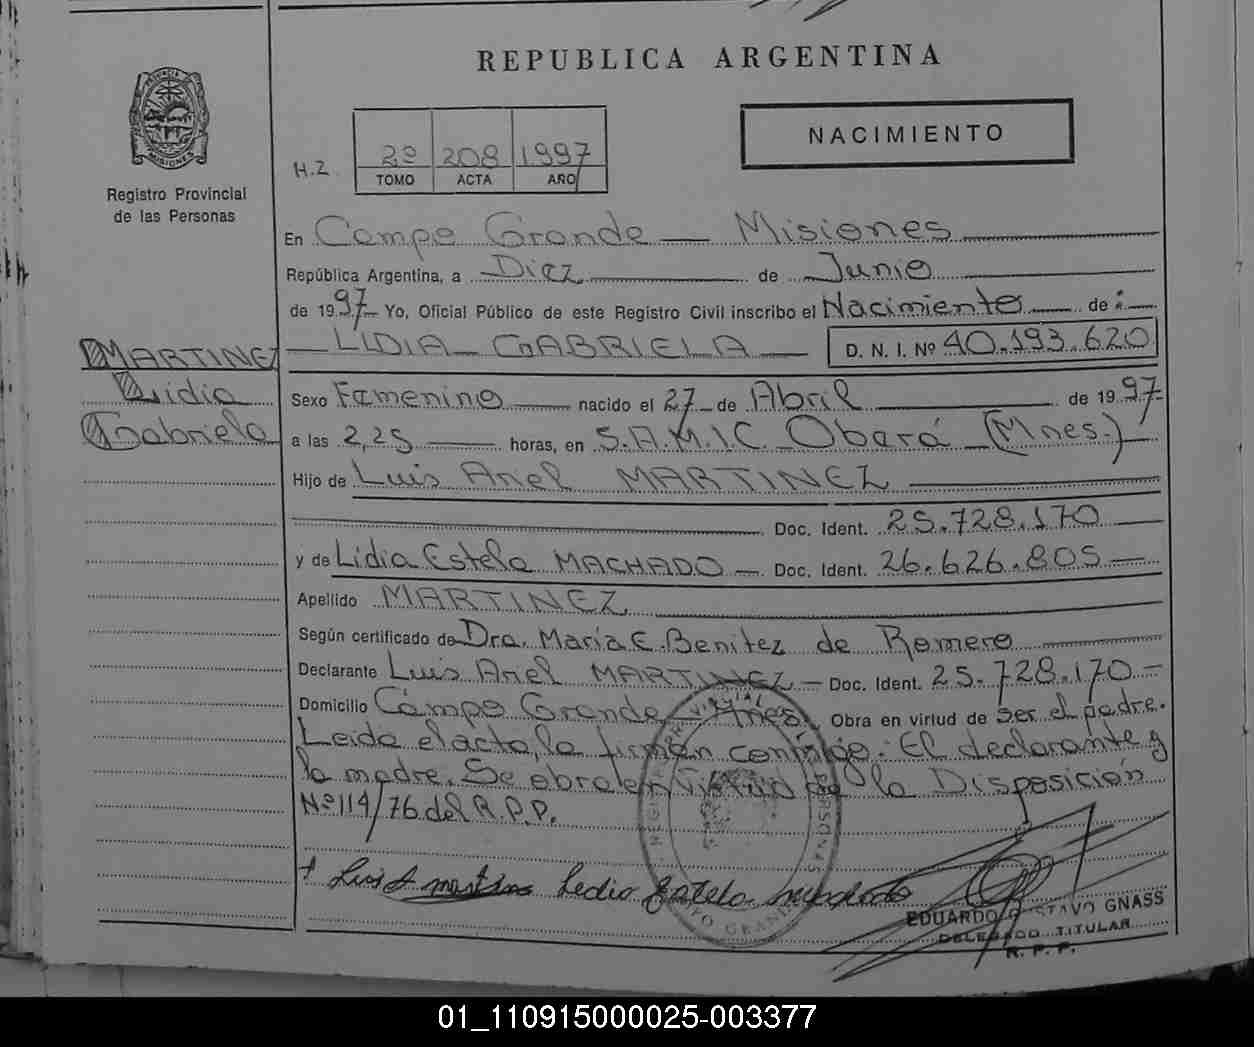 REPUBLICA ARGENTINA
NACIMIENTO
H.Z
2º 208 1997
TOMO ACTA AÑO
MISIONES
Registro Provincial
de las Personas
En Campo Grande — Misiones
República Argentina, a Diez de Junio
de 1997 Yo, Oficial Público de este Registro Civil inscribo el Nacimiento de:
— LIDIA GABRIELA — D. N. I. Nº 40.193.620
MARTINEZ
Lidia
Gabriela
Sexo Femenino nacido el 27 de Abril de 1997
a las 2,25 horas, en S.A.M.I.C. Oberá (Mnes.)
Hijo de Luis Ariel MARTINEZ
Doc. Ident. 25.728.170
y de Lidia Estela MACHADO — Doc. Ident. 26.626.805
Apellido MARTINEZ
Según certificado de Dra. María E. Benitez de Romero
Declarante Luis Ariel MARTINEZ — Doc. Ident. 25.728.170
Domicilio Campo Grande Mnes. Obra en virtud de ser el padre.
Leida el acta, la firman conmigo: El declarante y
la madre. Se obra en virtud de la Disposición
Nº 114/76 del R.P.P.
Luis A Martinez Lidia Estela Machado
EDUARDO GUSTAVO GNASS
DELEGADO TITULAR
R. P. P.
01_110915000025-003377